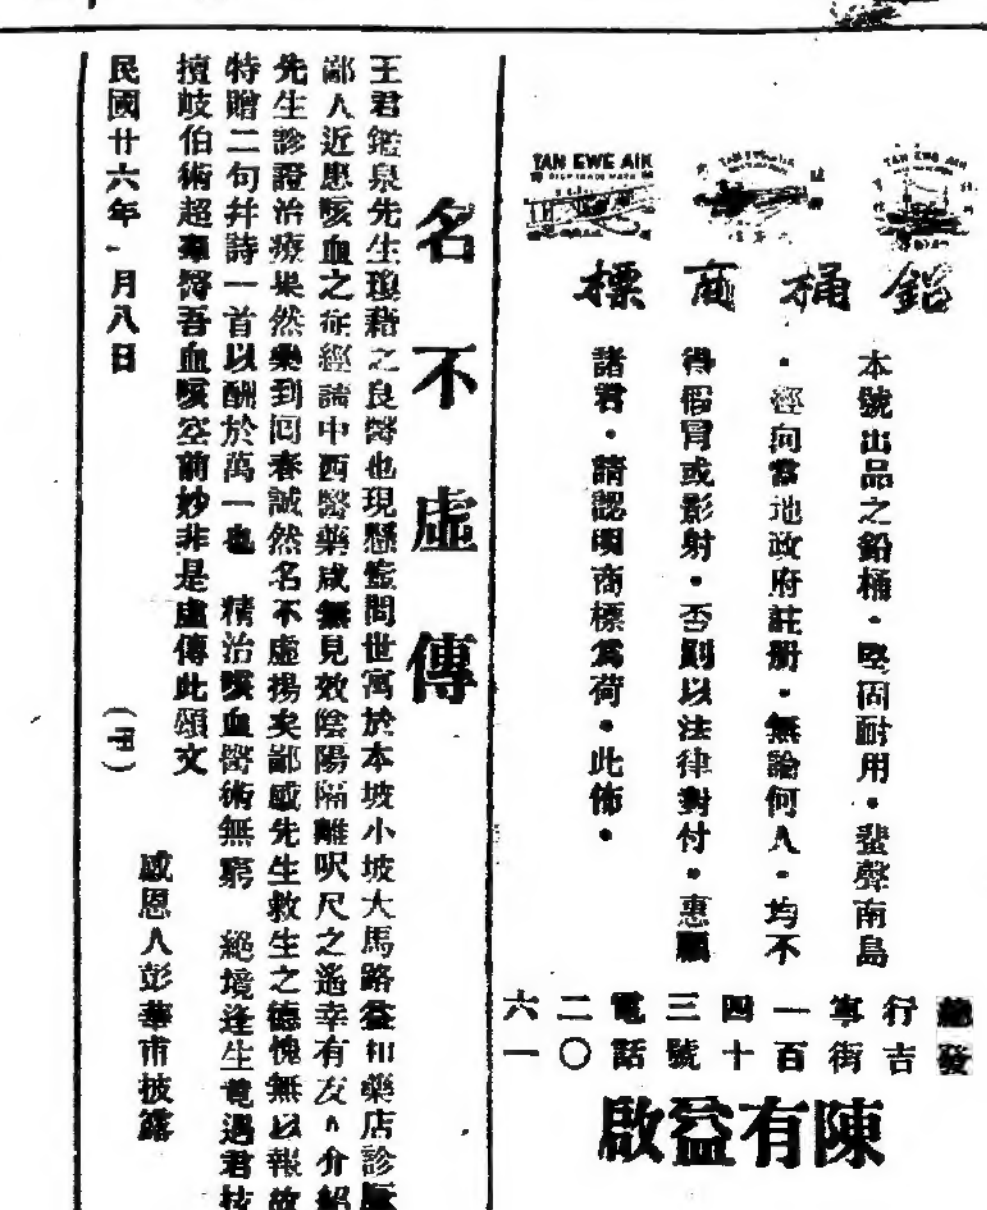 TAN EWE AIK
TAN EWE AIK
TAN EWE AIK
鋁桶商標
本號出品之鉛桶・堅固耐用・蜚聲南島
・經向當地政府註册・無論何人・均不
得假冒或影射・否則以法律對付・惠顧
諸君・請認明商標爲荷・此佈・
總發
行吉
寧街
一百
四十
三號
電話
二〇
六一
陳有益啟
名不虛傳
王君鑑泉先生瓊籍之良醫也現懸壺問世寓於本坡小坡大馬路益和藥店診脈
鄙人近患咳血之症經請中西醫藥咸無見效陰陽隔離呎尺之遙幸有友人介紹
先生診證治療果然藥到回春誠然名不虛揚矣鄙感先生救生之德愧無以報故
特贈二句幷詩一首以酬於萬一也 精治咳血醫術無窮 絕境逢生竟遇君技
擅岐伯術超羣醫吾血咳空前妙非是虛傳此頌文
感恩人彭華甫披露
民國廿六年一月八日